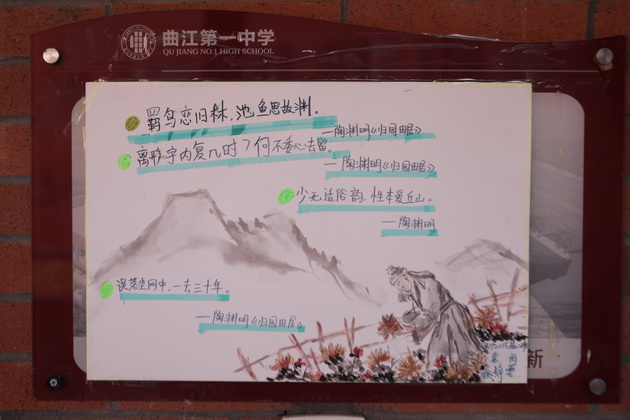 曲江第一中学
QU JIANG NO.1 HIGH SCHOOL
羁鸟恋旧林,池鱼思故渊.
—陶渊明《归园田居》
寓形宇内复几时?何不委心去留.
—陶渊明《归园田居》
少无适俗韵,性本爱丘山.
—陶渊明
误落尘网中,一去三十年.
—陶渊明《归园田居》
新